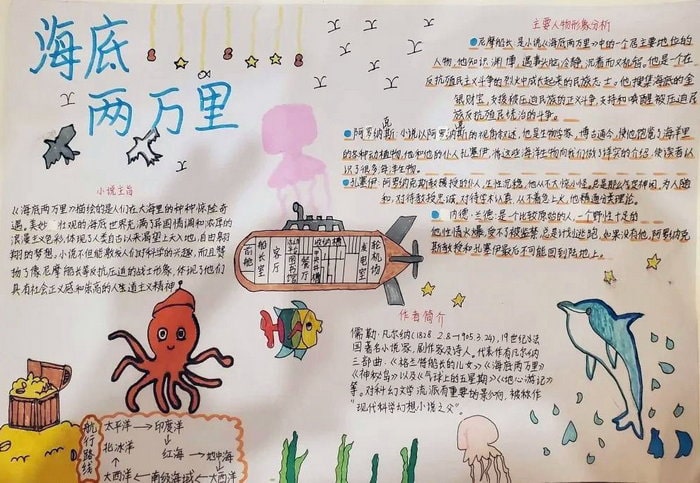 海底
两万里
小说主旨
《海底两万里》描绘的是人们在大海里的种种惊险奇
遇。美妙壮观的海底世界充满了异国情调和浓厚的
浪漫主义色彩,体现了人类自古以来渴望上天入地,自由翱
翔的梦想。小说不但能激发人们对科学的兴趣,而且赞
扬了像尼摩船长等反抗压迫的战士形象,体现了他们
具有社会正义感和崇高的人道主义精神
主要人物形象分析
尼摩船长 是小说《海底两万里》中的一个居主要地位的
人物,他知识渊博,遇事头脑冷静,沉着而又机智。他是个在
反抗殖民主义斗争的烈火中成长起来的民族志士。他搜集海底的金
银财宝,支援被压迫民族的正义斗争,支持和唤醒被压迫居
族反抗殖民统治的斗争。
阿罗纳斯 小说以阿罗纳斯的视角叙述,他是生物学家,博古通今,使他饱览了海洋里
的各种动植物,他和他的仆人孔塞伊,将这些海洋生物向我们做了详实的介绍,使读者认
识了很多海洋生物。
孔塞伊 阿罗纳克斯教授的仆人,生性沉稳,他从不大惊小怪,总是那么气定神闲,为人随
和,对待教授忠诚,对待学术认真,从不着急上火,他精通分类理论。
内德·兰德 是个比较原始的人,一个野性十足的
他性情火爆,受不了被监禁,总是计划逃跑,如果没有他,阿罗纳克
斯教授和孔塞伊最后不可能回到陆地上。
前舱
船长室
客厅
图书馆
餐厅
厨房
电室
轮机房
作者简介
儒勒·凡尔纳(1828.2.8—1905.3.24),19世纪法
国著名小说家,剧作家及诗人。代表作有凡尔纳
三部曲:《格兰特船长的儿女》《海底两万里》
《神秘岛》以及《气球上的五星期》《地心游记》
等。对科幻文学流派有重要的影响,被称作
"现代科学幻想小说之父"。
航行路线
太平洋→印度洋
北冰洋 红海→地中海
大西洋←南极海域←大西洋